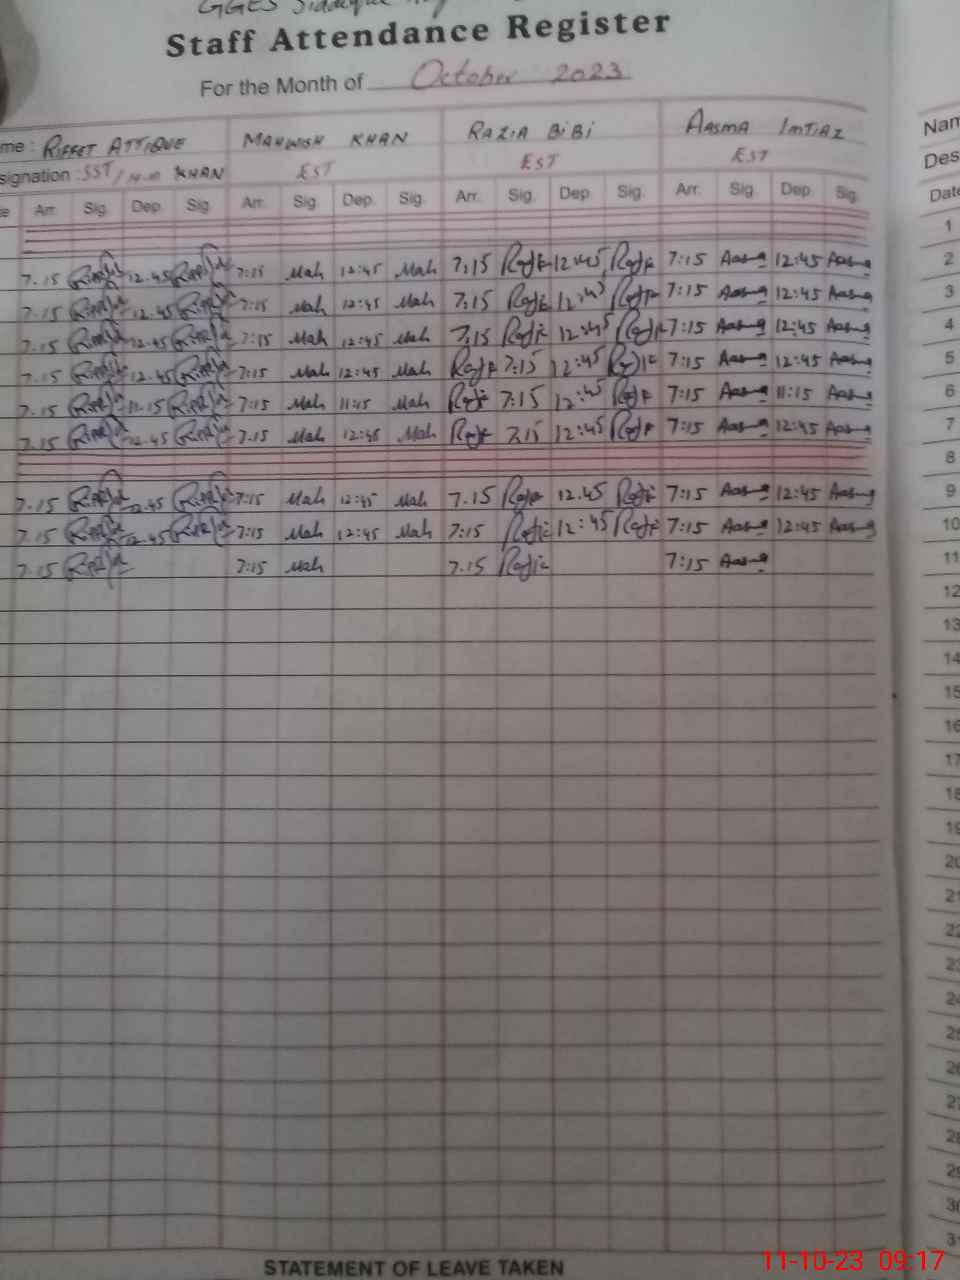 GGES
Staff Attendance Register
For the Month of October 2023
me : RIFFET ATTIQUE MAHWISH KHAN RAZIA BiBi AASMA IMTIAZ Nam
signation : SST / KHAN EST EST EST Des
e Arr. Sig. Dep. Sig. Arr. Sig. Dep. Sig. Arr. Sig. Dep. Sig. Arr. Sig. Dep. Sig. Date
1
7.15 12.45 7:15 Mah 12:45 Mah 7:15 12:45 7:15 Aasma 12:45 Aasma 2
7.15 12.45 7:15 Mah 12:45 Mah 7:15 12:45 7:15 Aasma 12:45 Aasma 3
7.15 12.45 7:15 Mah 12:45 Mah 7.15 12:45 7:15 Aasma 12:45 Aasma 4
7.15 12.45 7:15 Mah 12:45 Mah 7:15 12:45 7:15 Aasma 12:45 Aasma 5
7.15 11.15 7:15 Mah 11:15 Mah 7:15 12:45 7:15 Aasma 11:15 Aasma 6
7.15 12.45 7.15 Mah 12:45 Mah 7.15 12:45 7:15 Aasma 12:45 Aasma 7
8
7.15 12.45 7:15 Mah 12:45 Mah 7.15 12.45 7:15 Aasma 12:45 Aasma 9
7.15 12.45 7:15 Mah 12:45 Mah 7:15 12:45 7:15 Aasma 12:45 Aasma 10
7.15 7:15 Mah 7.15 7:15 Aasma 11
12
13
14
15
16
17
18
19
20
21
22
23
24
25
26
27
28
29
30
3
STATEMENT OF LEAVE TAKEN
11-10-23 09:17